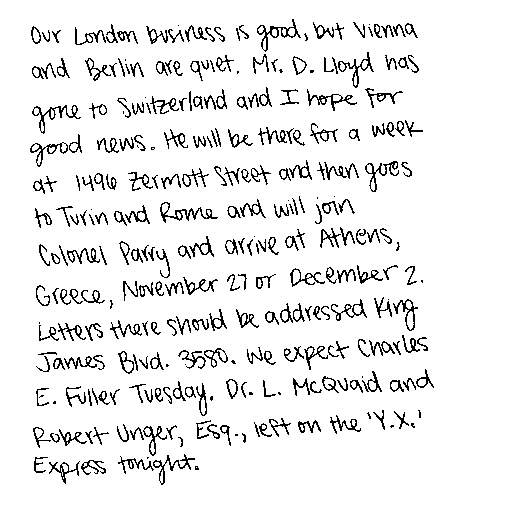 Our London business is good, but Vienna
and Berlin are quiet. Mr. D. Lloyd has
gone to Switzerland and I hope for
good news. He will be there for a week
at 1496 Zermott Street and then goes
to Turin and Rome and will join
Colonel Parry and arrive at Athens,
Greece, November 27 or December 2.
Letters there should be addressed King
James Blvd. 3580. We expect Charles
E. Fuller Tuesday. Dr. L. McQuaid and
Robert Unger, Esq., left on the 'Y.X.'
Express tonight.